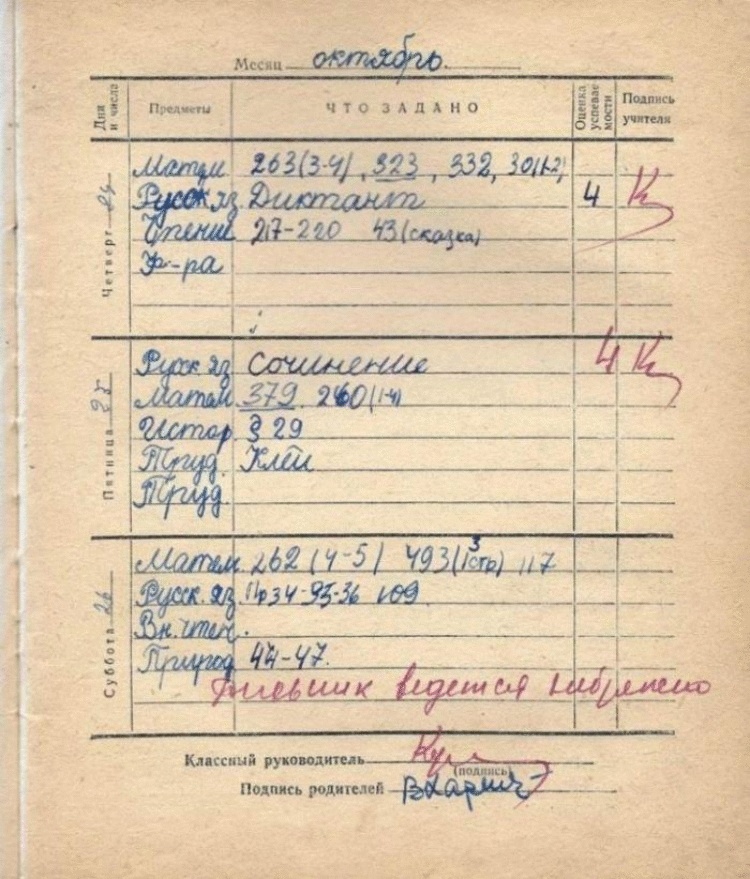 Месяц октябрь
Дни и числа Предметы ЧТО ЗАДАНО Оценка успевае мости Подпись учителя
Четверг 24
Матем 263(3-4), 323, 332, 30(1-2)
Русск яз. Диктант 4
Чтение 217-220 43(сказка)
Ф-ра
Пятница 25
Русск яз Сочинение 4
Матем 379. 260(1-4)
Истор § 29
Труд. Клей
Труд.
Суббота 26
Матем. 262 (4-5) 493(1 3 стр) 117
Русск. яз. 109
Вн. чтен.
Природ 44-47.
Дневник ведется небрежно
Классный руководитель
(подпись)
Подпись родителей